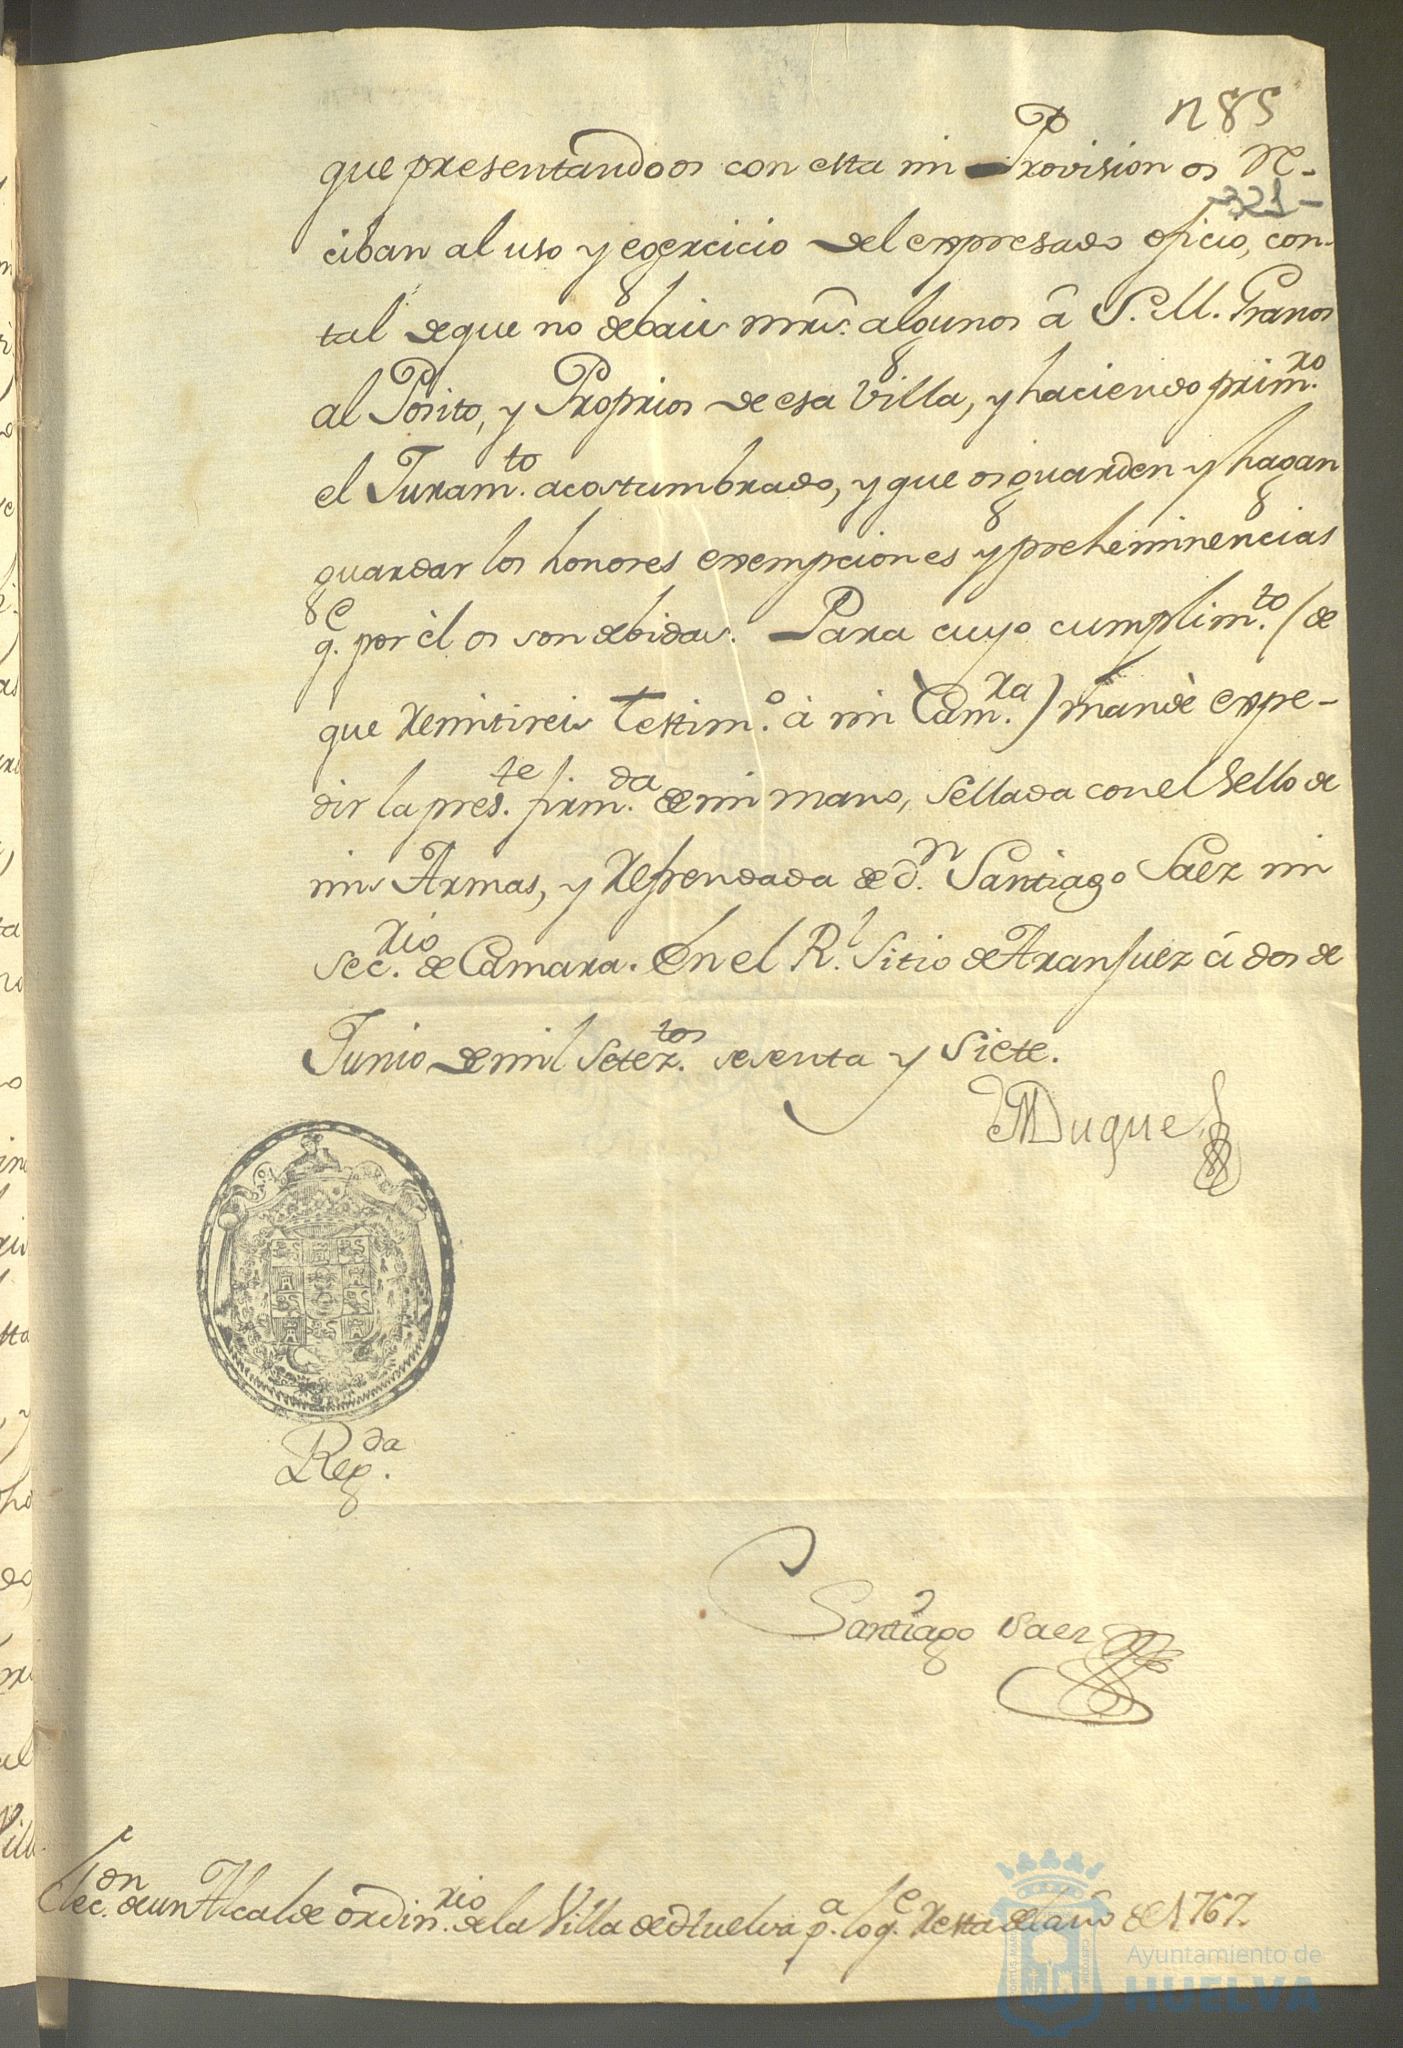 n 85
que presentandoos con esta mi Provision os Re-
-321-
ciban al uso y egercicio del expresado oficio, con-
tal deque no debais mrs. algunos â S. M. Granos
al Posito, y Proprios de esa Villa, y haciendo prim.ro
el Juram.to acostumbrado, y que os guarden y hagan
guardar los honores exempciones y preheminencias
q.e por èl os son debidas. Para cuyo cumplim.to (de
que remitireis Testim.o à mi Cam.ra) mandè expe-
dir la pres.te firm.da de mi mano, sellada con el Sello de
mis Armas, y refrendada de d.n Santiago Saez mi
Sec.rio de Camara. En el R.l Sitio de Aranjuez à dos de
Junio de mil Setez.tos sesenta y Siete.
Duque
Reg.da
Santiago Saez
Elec.on de un Alcalde ordin.rio de la Villa de Huelva p.a lo q.e resta del año de 1767.
Ayuntamiento de
HUELVA